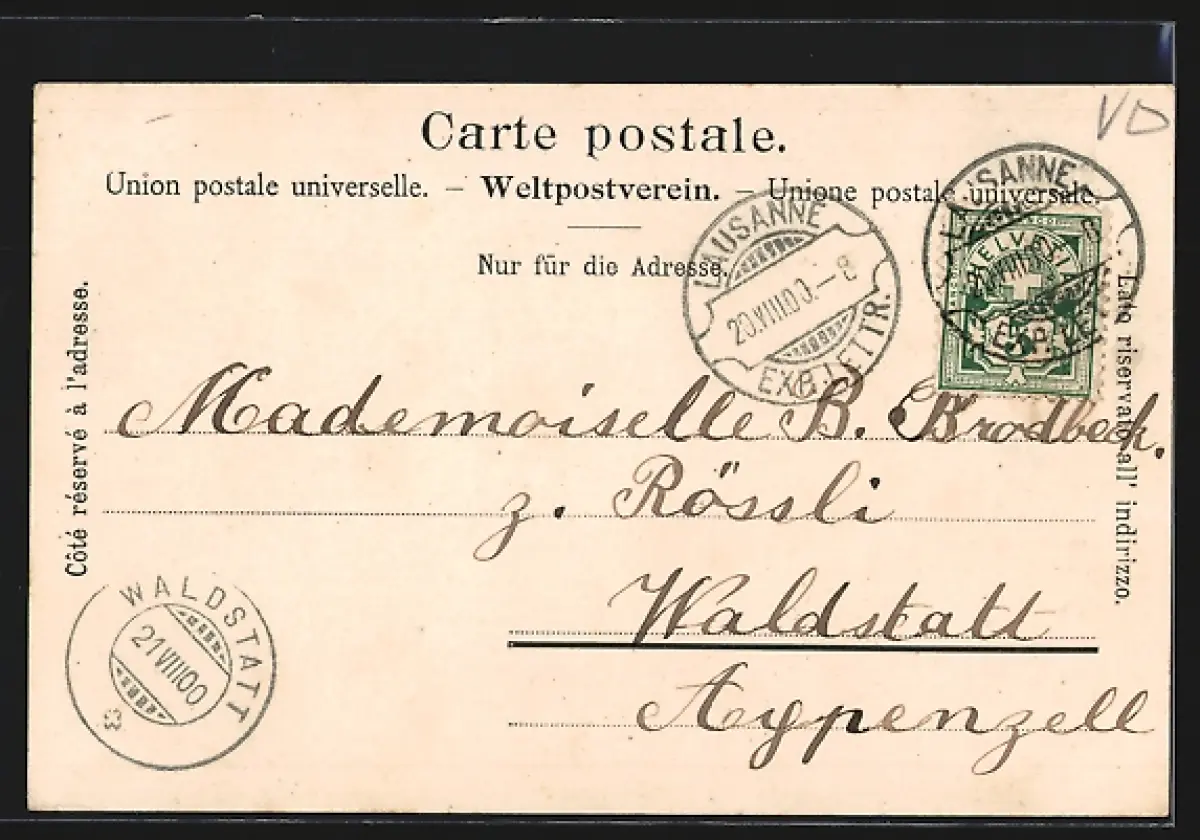 VD
Carte postale.
Union postale universelle. – Weltpostverein. – Unione postale universale.
Nur für die Adresse.
LAUSANNE
20.VIII.00.–8
EXP. LETTR.
LAUSANNE
20.VIII.00
EXP. LE
HELVETIA
Côté réservé à l'adresse.
Lato riservato all' indirizzo.
Mademoiselle B. Brodbeck.
z. Rössli
Waldstatt
Appenzell
WALDSTATT
21 VIII 00